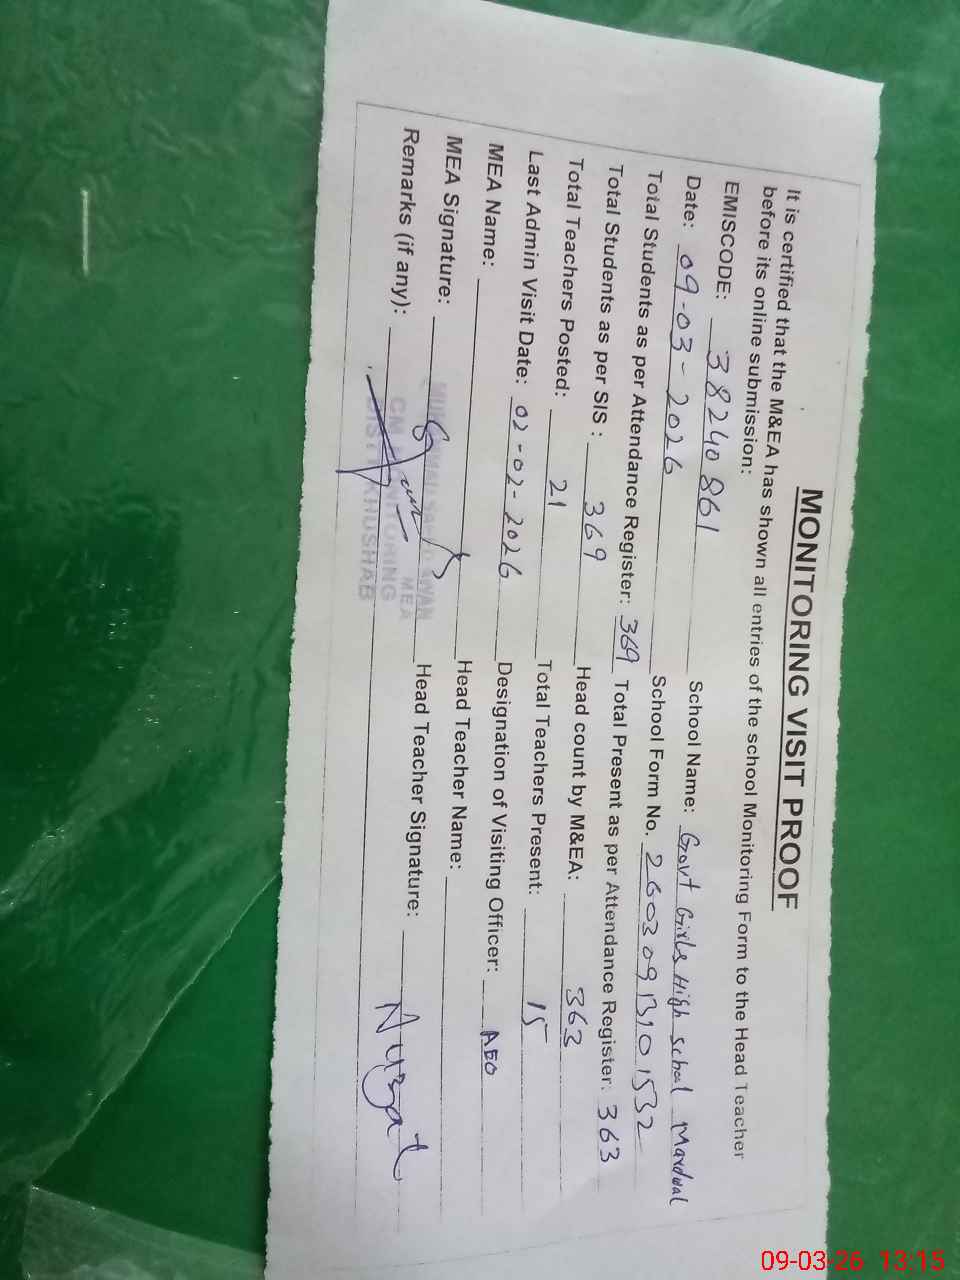 MONITORING VISIT PROOF
It is certified that the M&EA has shown all entries of the school Monitoring Form to the Head Teacher
before its online submission:
EMISCODE: 38240861 School Name: Govt Girls High School Mardwal
Date: 09-03-2026 School Form No. 2603091310 1532
Total Students as per Attendance Register: 369 Total Present as per Attendance Register: 363
Total Students as per SIS : 369 Head count by M&EA: 363
Total Teachers Posted: 21 Total Teachers Present: 15
Last Admin Visit Date: 02-02-2026 Designation of Visiting Officer: AEO
MEA Name: Head Teacher Name:
MEA Signature: Head Teacher Signature: Nuzat
Remarks (if any):
AWAN
MEA
MONITORING
DISTT KHUSHAB
09-03-26 13:15